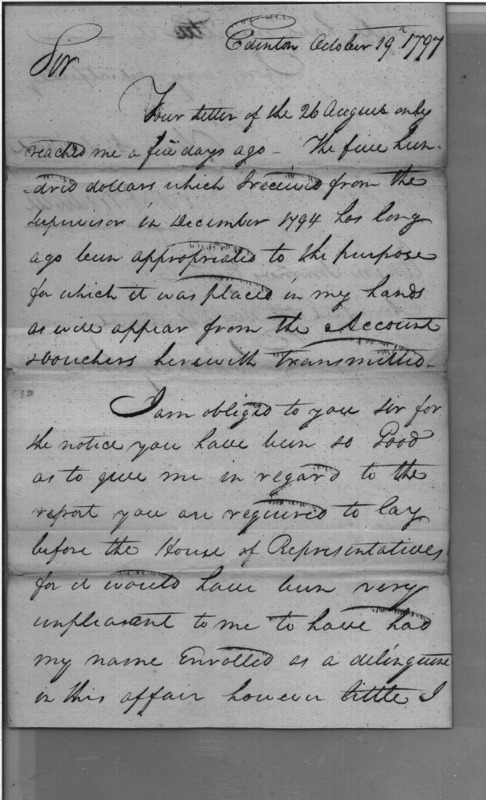 Edenton October 19th 1797
Sir
Your Letter of the 26 August only
reached me a few days ago – The five hun-
-dred dollars which I received from the
Supervisor in December 1794 has long
ago been appropriated to the purpose
for which it was placed in my hands
as will appear from the Account
& vouchers herewith transmitted –
I am obliged to you Sir for
the notice you have been so Good
as to give me in regard to the
report you are required to lay
before the House of Representatives
for it would have been very
unpleasant to me to have had
my name Enrolled as a delinquent
in this affair however little I